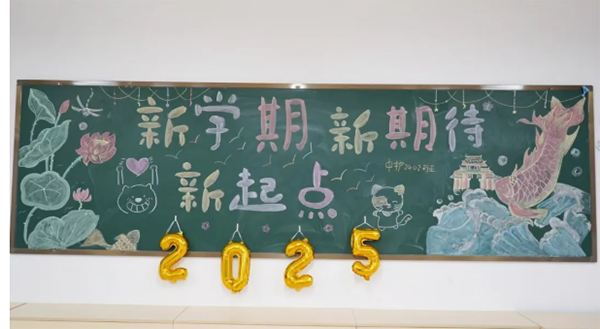 新学期 新期待
新起点
中护2402班
2025